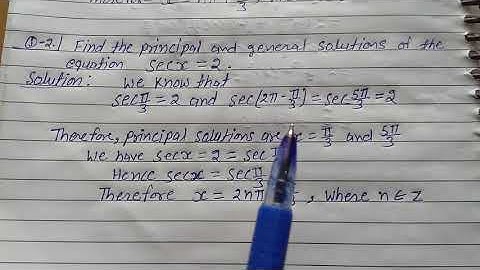 Q-2. Find the principal and general solutions of the
equation sec x = 2.
Solution: We know that
sec π/3 = 2 and sec(2π - π/3) = sec 5π/3 = 2
Therefore, principal solutions are x = π/3 and 5π/3
We have sec x = 2 = sec
Hence sec x = sec π/3
Therefore x = 2nπ , where n ∈ Z